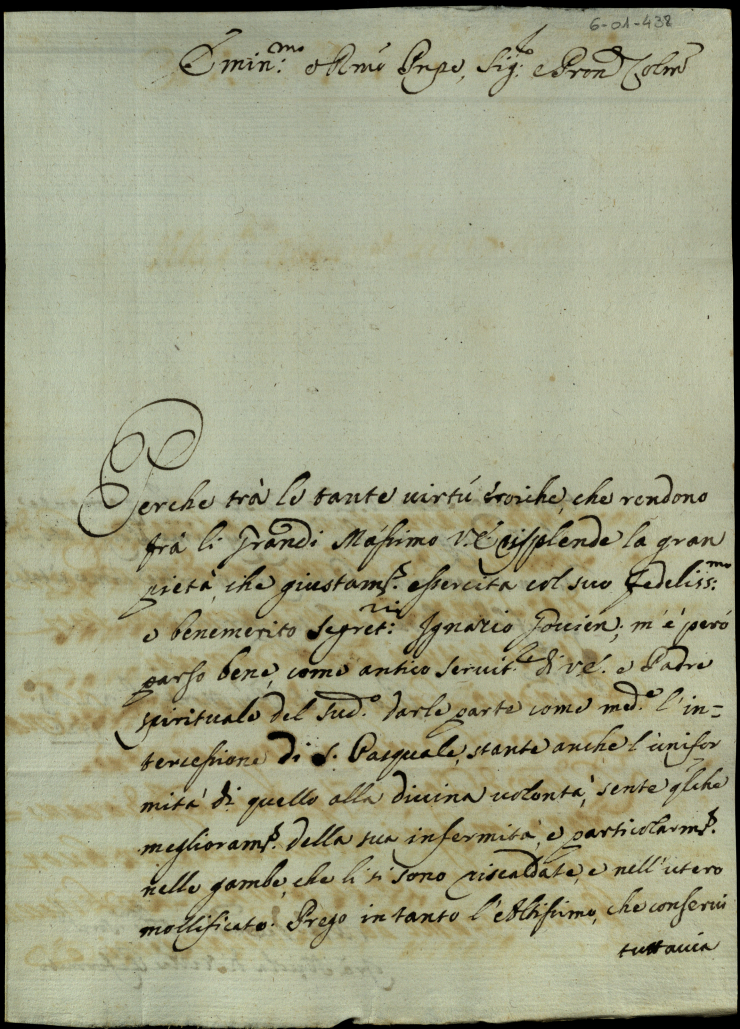 6-01-438
Emin:mo e Rmo Pnpe, Sig:r e Pron Colmo
Perche trà le tante uirtú éroiche, che rendono
frà li Grandi Mássimo V.E. risplende la gran
pietà, che giustamte. essercita col suo fedeliss:mo
e benemerito Segret:rio Ignazio, m'é peró
parso bene, come antico seruit.re di V.E. e Padre
spirituale del sud.o darle parte come med.e l'in=
tercessione di S. Pasquale, stante anche l'unifor
mità di quello alla diuina uolontà, sente qlche
miglioramte. della sua infermità, e particolarmte.
nelle gambe, che li si sono riscaldate, e nell'utero
mollificato. Prego intanto l'Altissimo, che conserui
tuttauia